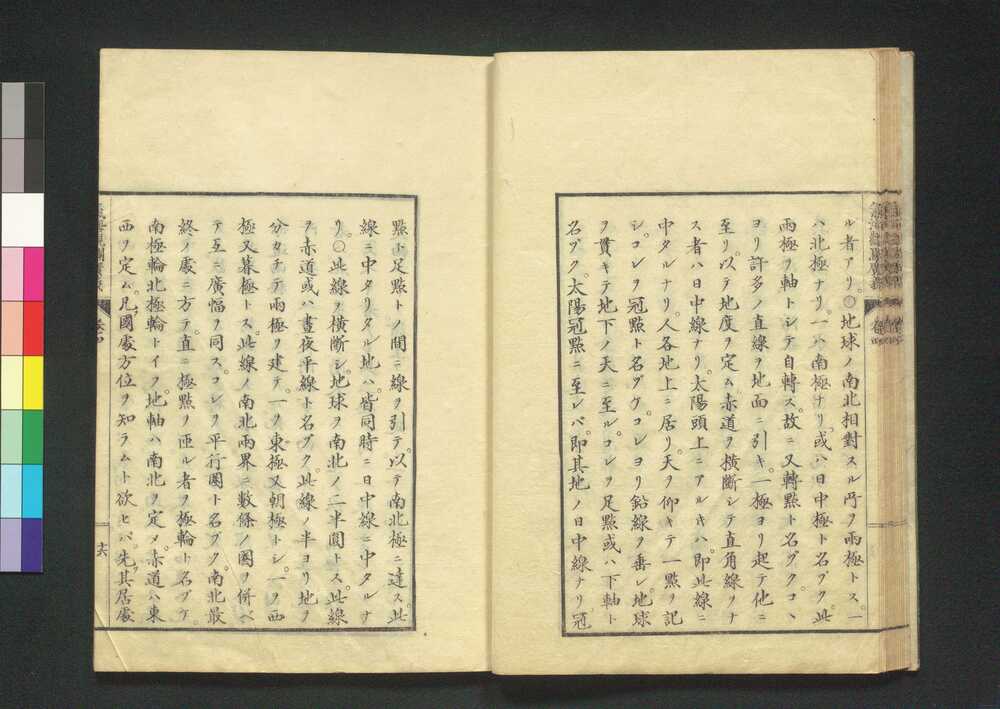 ル者アリ。〇地球ノ南北相對スル所ヲ兩極トス。一
ハ北極ナリ。一ハ南極ナリ。或ハ日中極ト名ブク。此
兩極ヲ軸トシテ自轉ス。故ニ又轉點ト名ヅク。コヽ
ヨリ許多ノ直線ヲ地面ニ引キ。一極ヨリ起テ他ニ
至リ。以テ地度ヲ定ム赤道ヲ横斷シテ直角線ヲナ
ス者ハ日中線ナリ。太陽頭上ニアルキハ。即此線ニ
中タルナリ。人各地上ニ居リ。天ヲ仰キテ一點ヲ記
シ。コレヲ冠點ト名ヅク。コレヨリ鉛線ヲ垂レ。地球
ヲ貫キテ地下ノ天ニ至ル。コレヲ足點或ハ下軸ト
名ヅク。太陽冠點ニ至レバ。即其地ノ日中線ナリ。冠
點ト足點トノ間ニ線ヲ引テ。以テ南北極ニ達ス。此
線ニ中タリタル地ハ。皆同時ニ日中線ニ中タルナ
リ。〇此線ヲ横斷シ。地球ヲ南北ノ二半圓トス。此線
ヲ赤道或ハ晝夜平線ト名ヅク。此線ノ半ヨリ地ヲ
分カチテ兩極ヲ建テ。一ヲ東極又朝極トシ。一ヲ西
極又暮極トス。此線ノ南北兩界ニ數條ノ圏ヲ併ベ
テ互ニ廣幅ヲ同ス。コレヲ平行圏ト名ヅク。南北最
終ノ處ニ方テ。直ニ極點ヲ匝ル者ヲ極輪ト名ヅケ。
南極輪北極輪トイフ。地軸ハ南北ヲ定メ。赤道ハ東
西ヲ定ム。凡國處方位ヲ知ラムト欲セバ。先其居處
十六